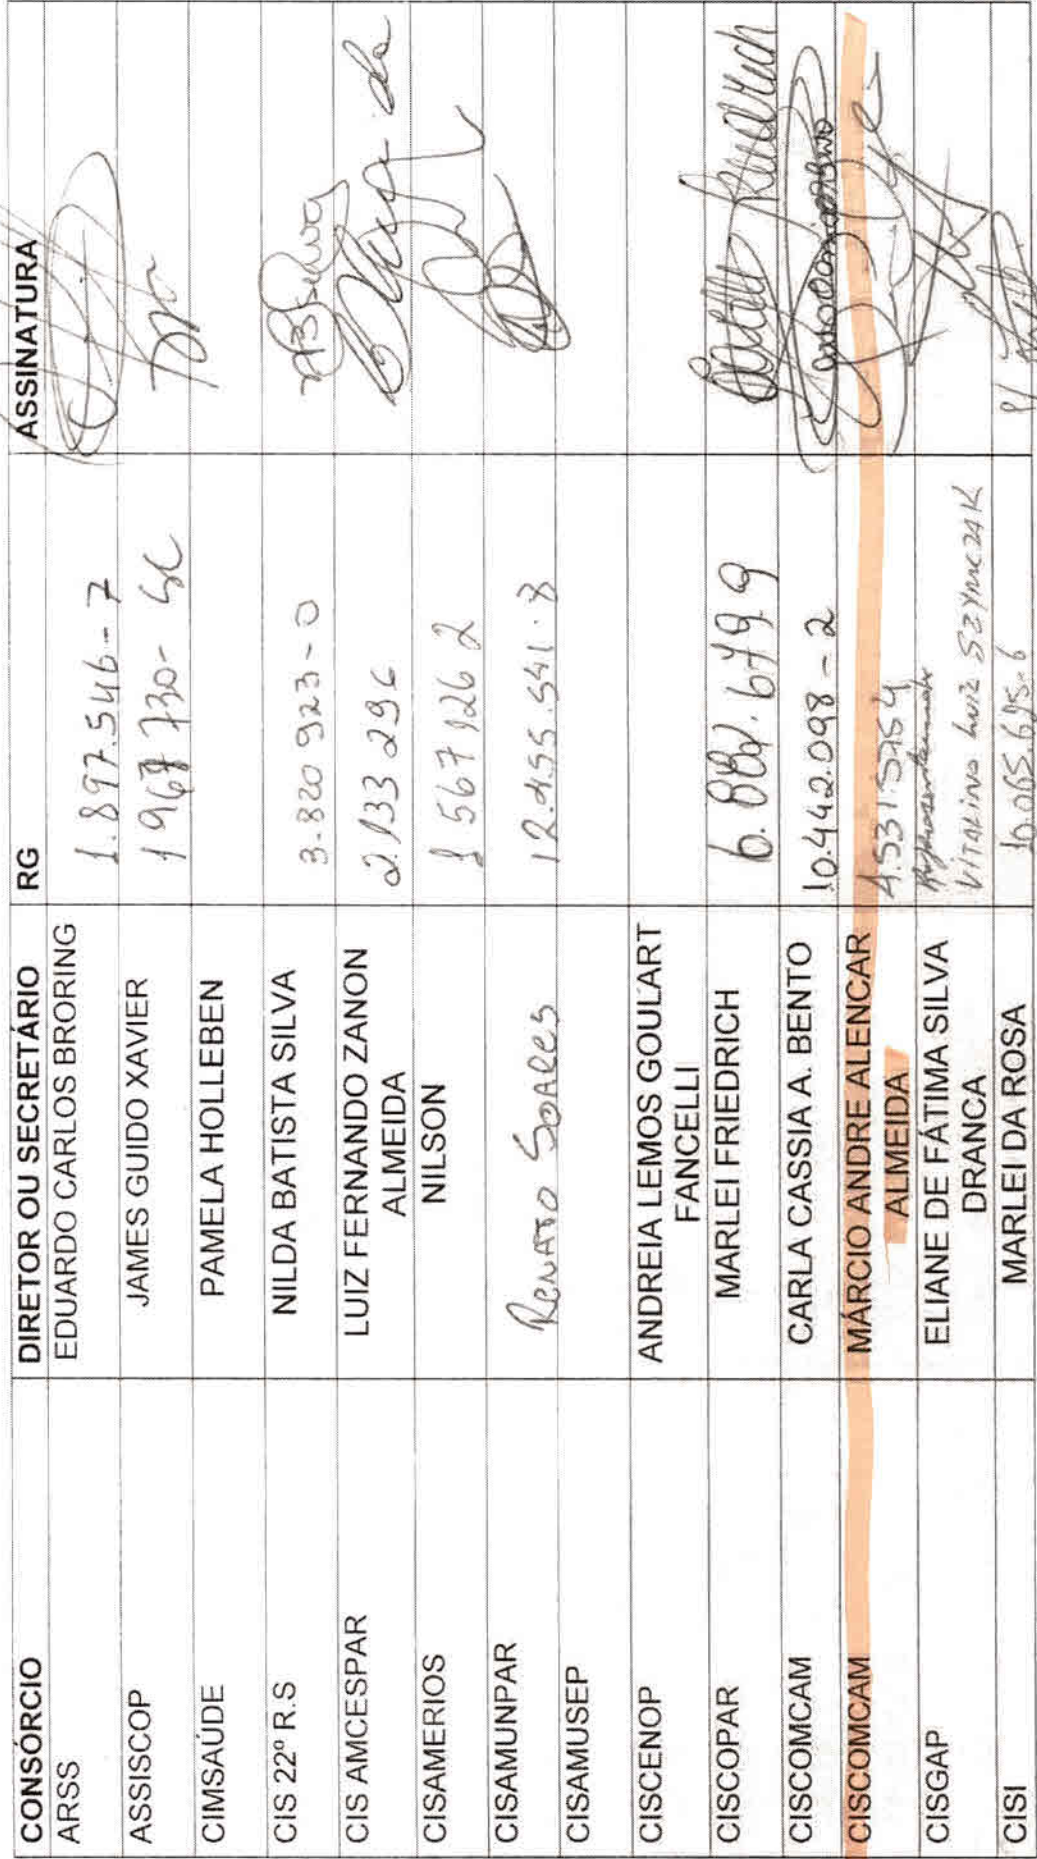 CONSÓRCIO DIRETOR OU SECRETÁRIO RG ASSINATURA
ARSS EDUARDO CARLOS BRORING 1.897.546-7
ASSISCOP JAMES GUIDO XAVIER 1967730-SC
CIMSAÚDE PAMELA HOLLEBEN
CIS 22º R.S NILDA BATISTA SILVA 3.820 923-0 NBSilva
CIS AMCESPAR LUIZ FERNANDO ZANON 2.133 296
ALMEIDA
CISAMERIOS NILSON 1 567 126 2
CISAMUNPAR RENATO SOARES 12.455.541.8
CISAMUSEP
CISCENOP ANDREIA LEMOS GOULART
FANCELLI
CISCOPAR MARLEI FRIEDRICH
CISCOMCAM CARLA CASSIA A. BENTO 10.442.098-2
CISCOMCAM MÁRCIO ANDRE ALENCAR
ALMEIDA
CISGAP ELIANE DE FÁTIMA SILVA
DRANCA VITALINO LUIZ SZYMCZAK
CISI MARLEI DA ROSA 10.065.695-6